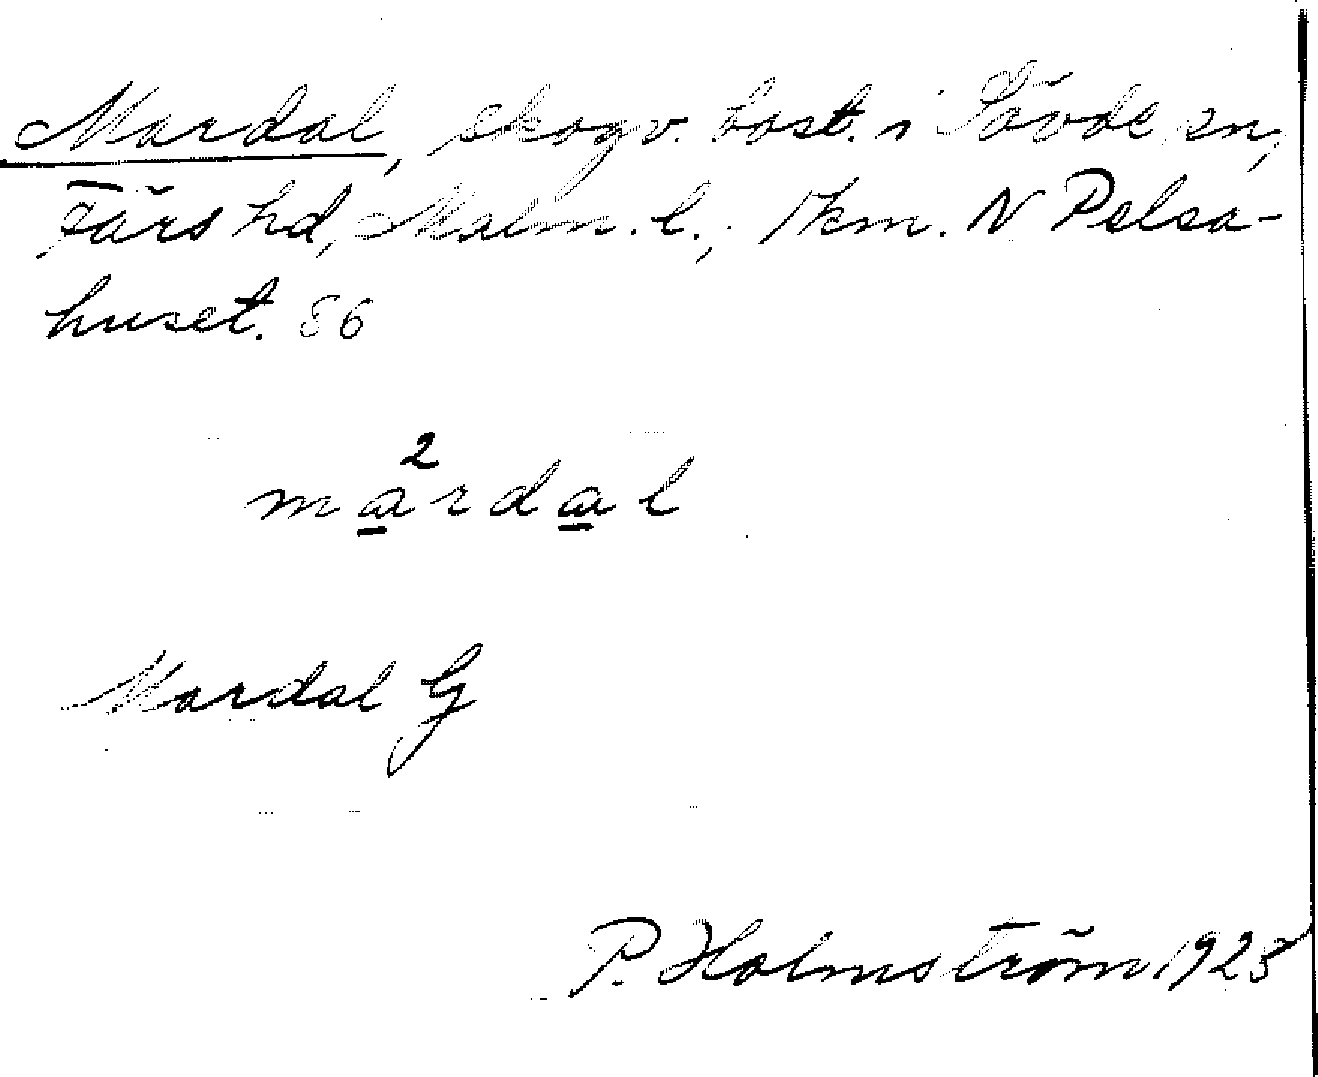 Mardal, skogv. bost. i Sövde sn,
Färs hd, Malm. l., 1 km. N Pelsa-
huset. 86
2
mardal
Mardal G
P. Holmström 1928